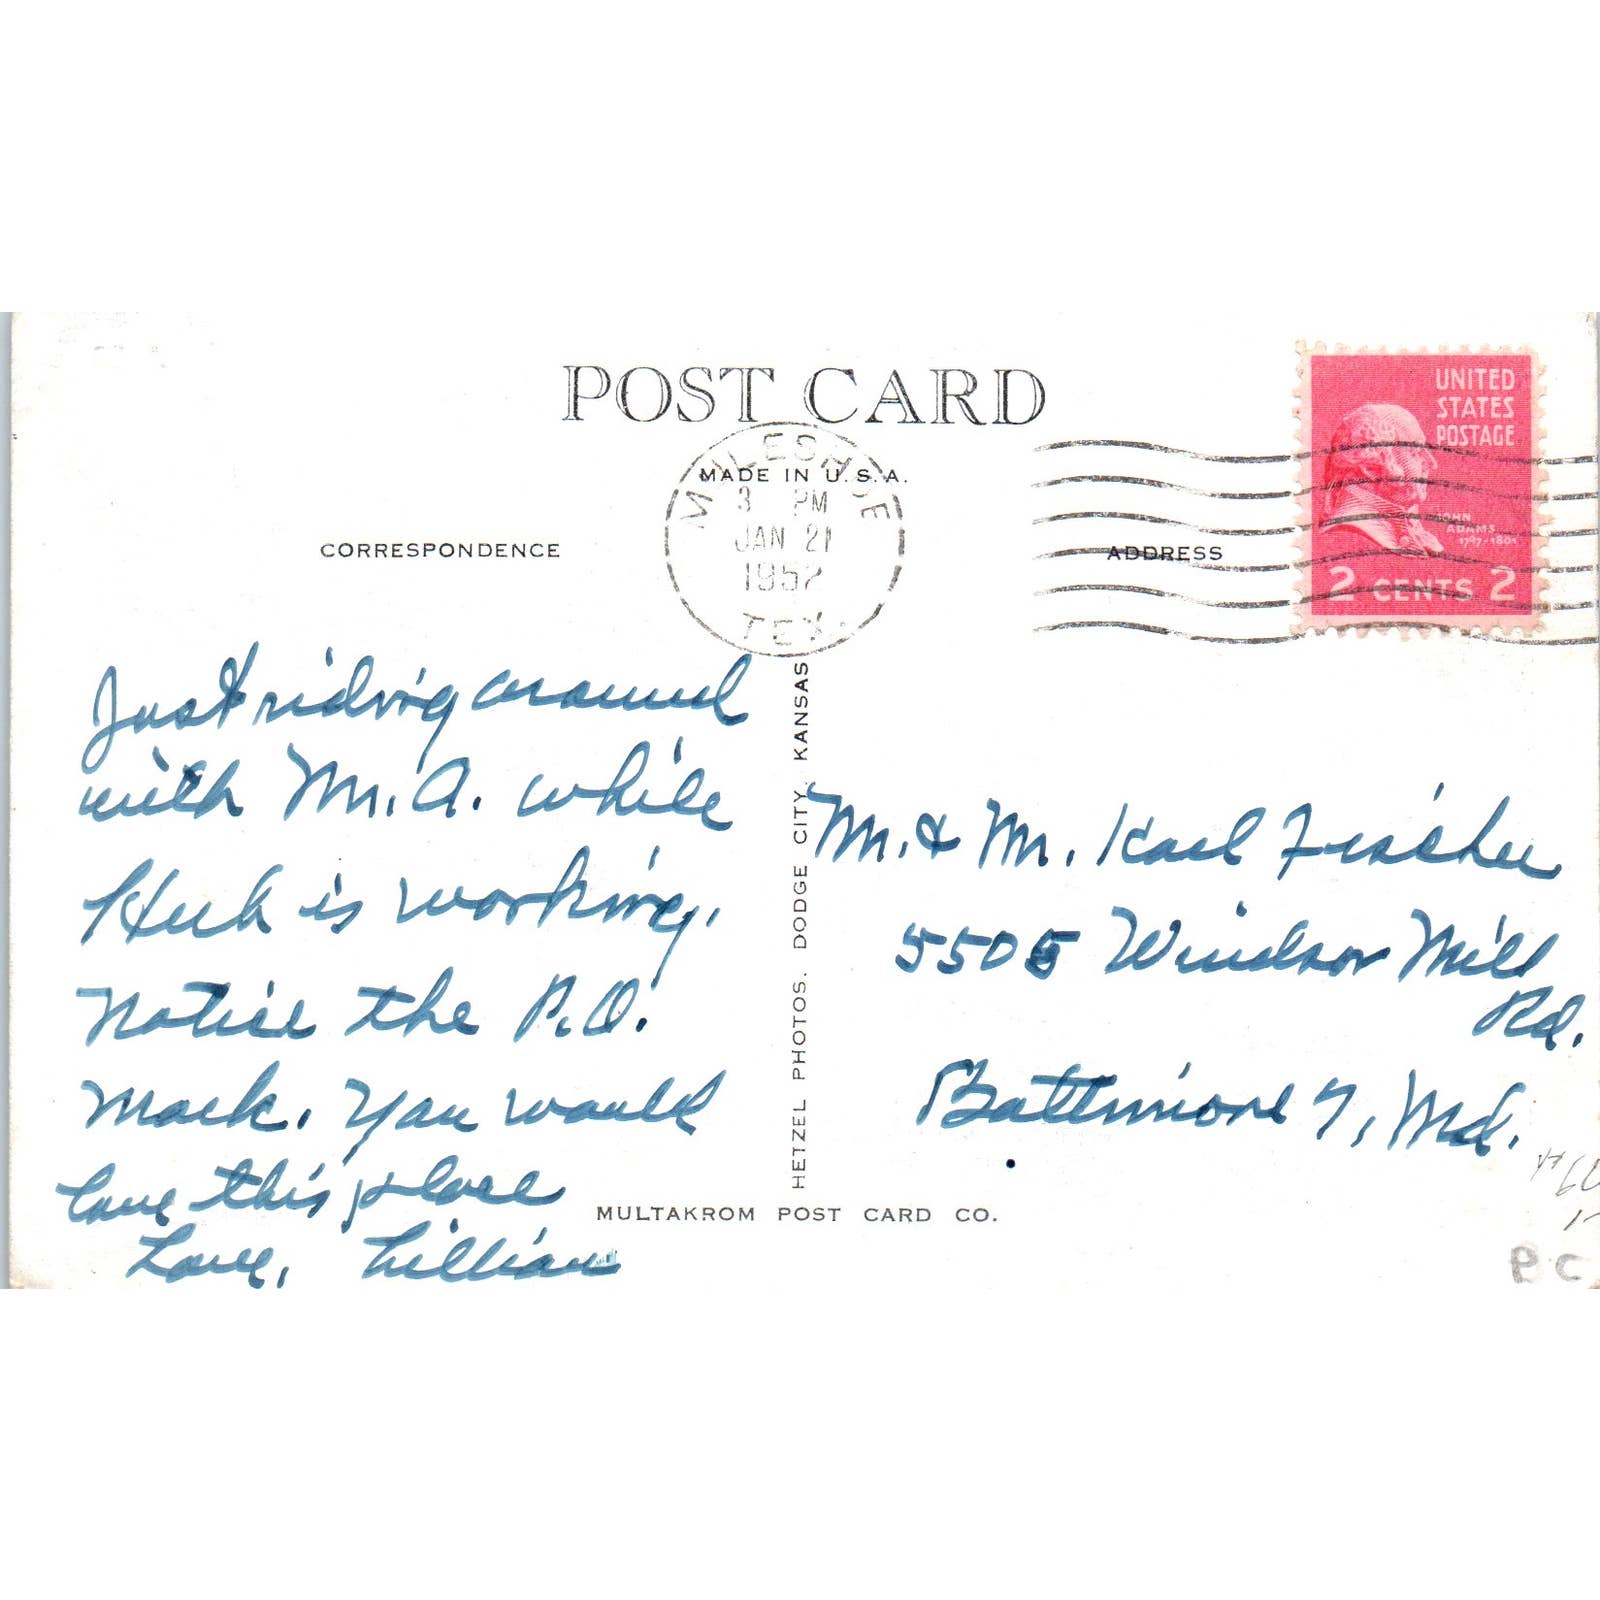 POST CARD
MADE IN U.S.A.
MULESHOE
3 PM
JAN 21
1952
TEX.
UNITED
STATES
POSTAGE
JOHN
ADAMS
1797-1801
2 CENTS 2
CORRESPONDENCE
ADDRESS
Just riding around
with Mr. A. while
Herb is working.
Notice the P.O.
Mark. You would
love this place
Love, Lillian
HETZEL PHOTOS. DODGE CITY, KANSAS
Mr. & Mr. Karl Fischer
5505 Windsor Mill
Rd.
Baltimore 7, Md.
MULTAKROM POST CARD CO.
PC